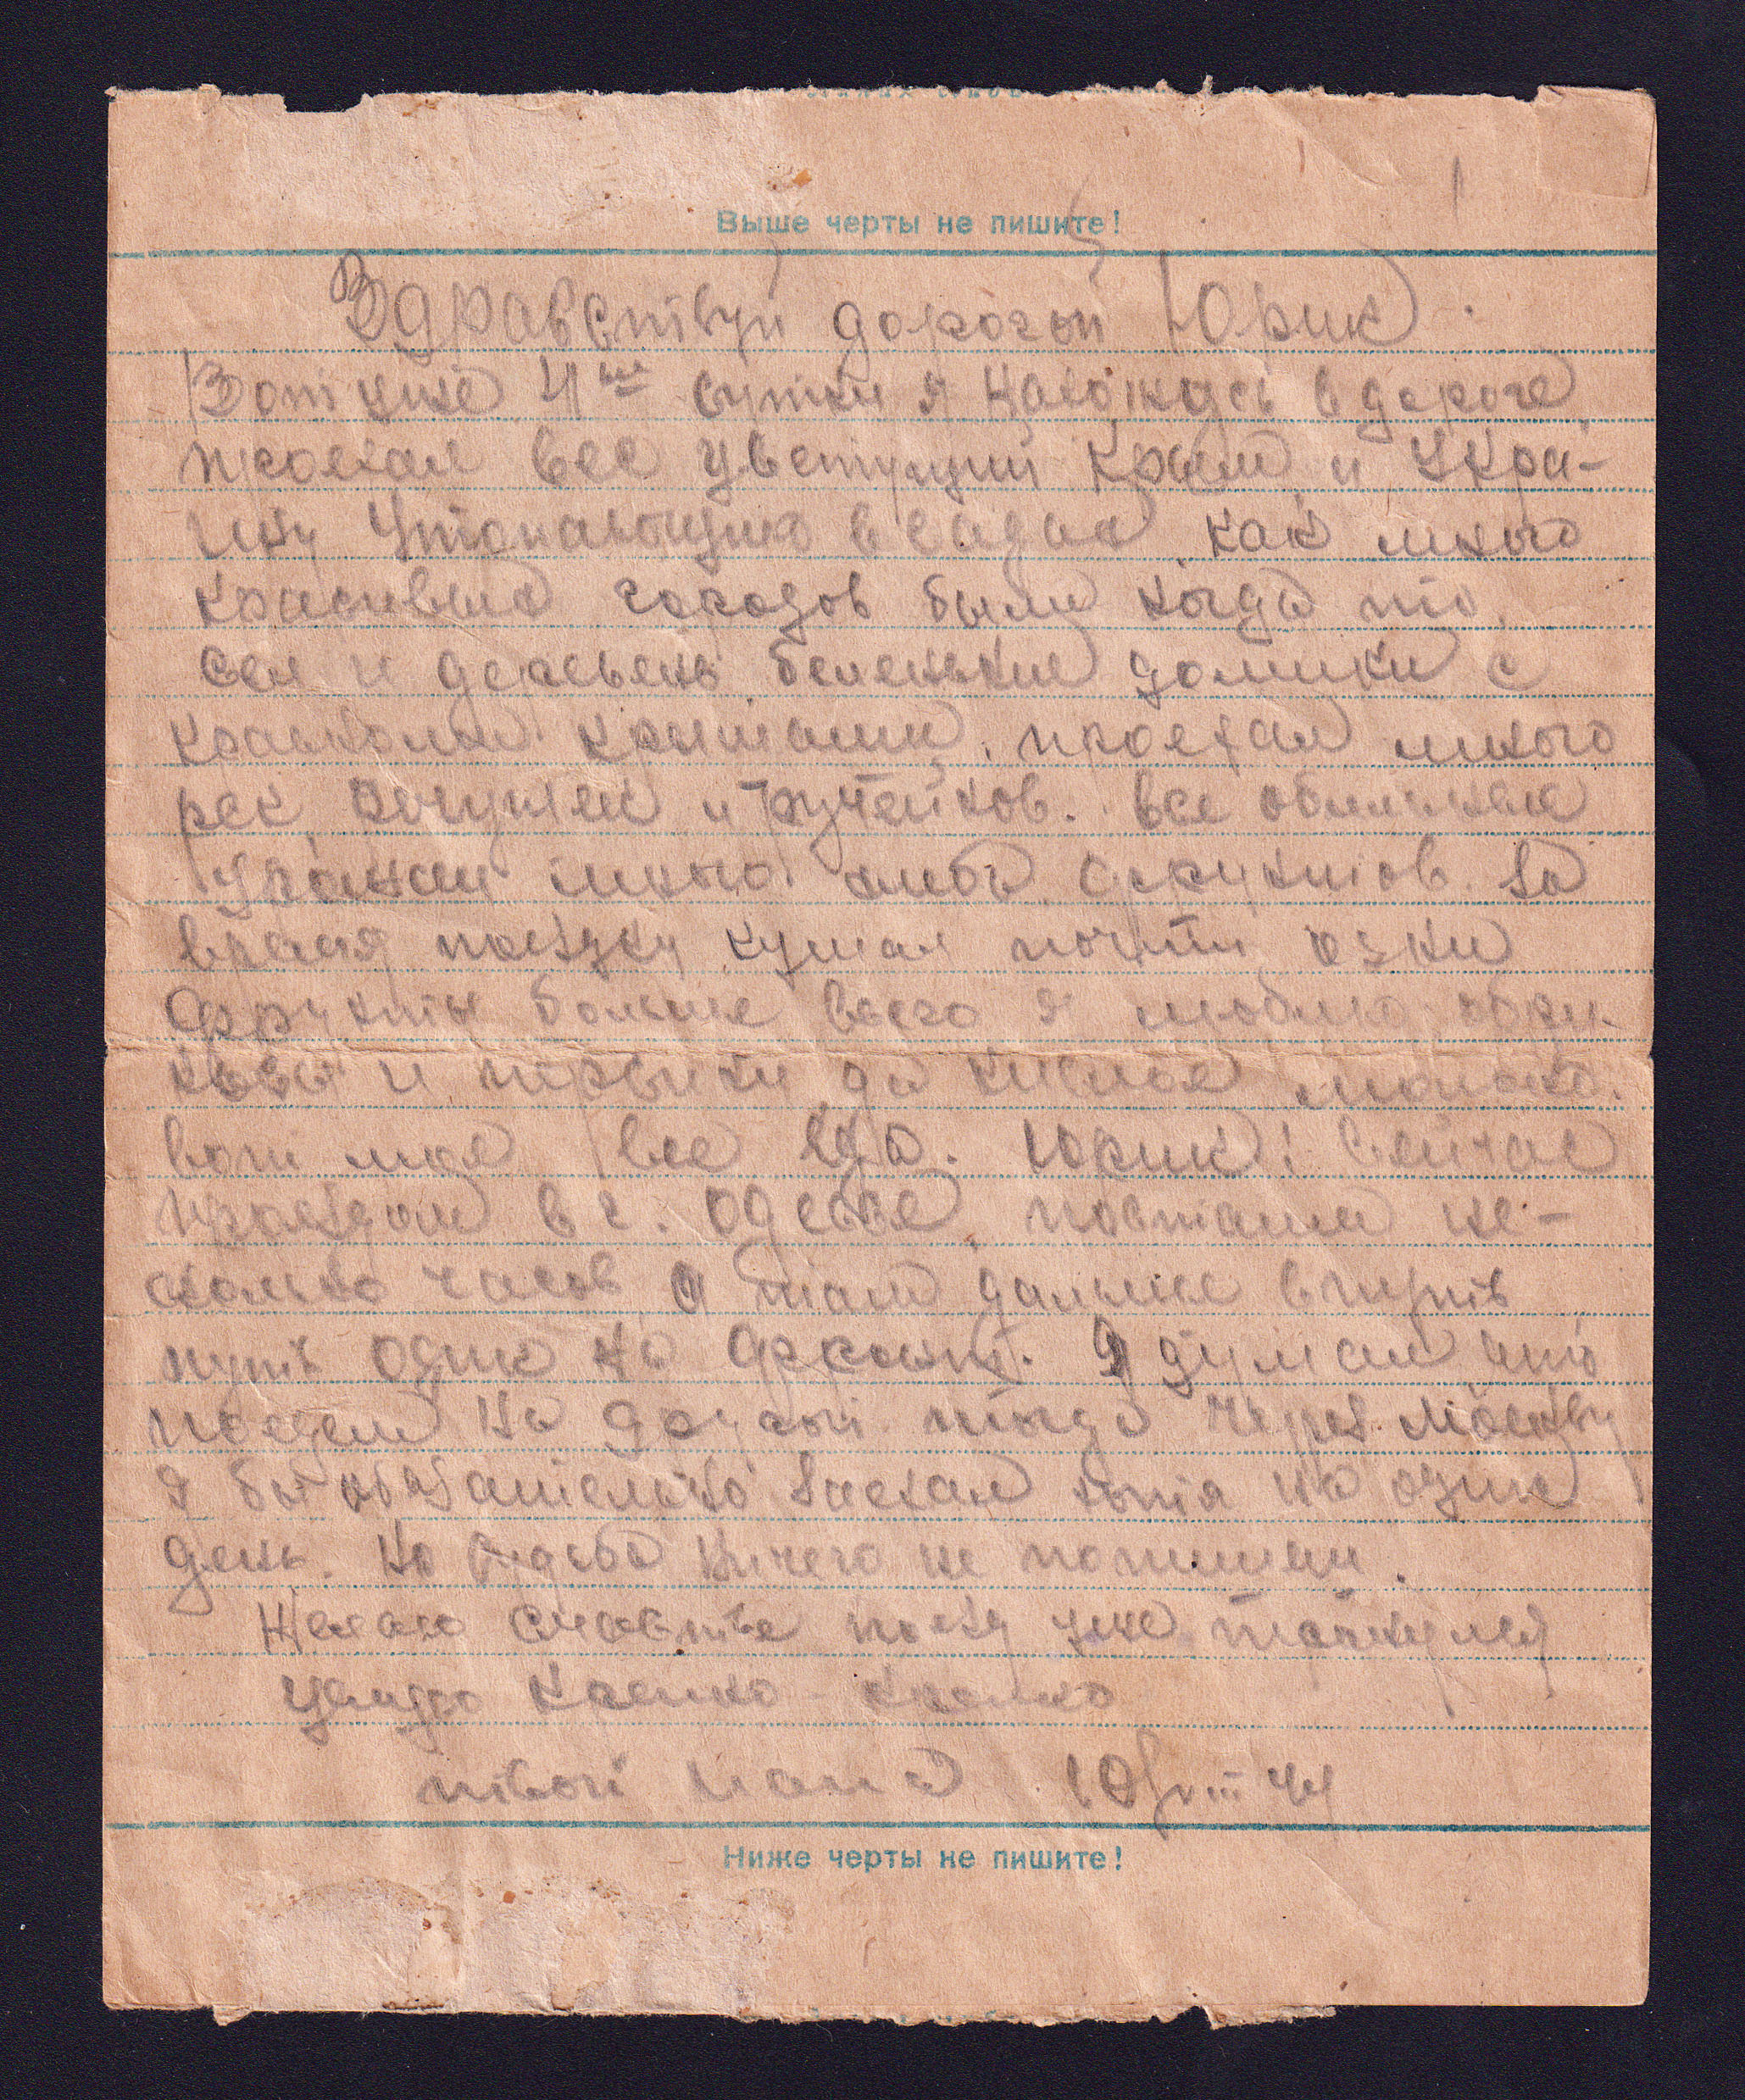 Выше черты не пишите!
Здравствуй дорогой Юрик.
Вот уже 4ые сутки я нахожусь в дороге
проехал весь цветущий Крым и Укра-
ину утопающую в садах, как много
красивых городов были когда то,
сел и деревень беленькие домики с
крышами, проехал много
рек, речушек и ручейков. все обильные
урожаи много хлеба фруктов. За
время поездки кушал почти одни
фрукты больше всего я люблю абри-
косы и да кислое молоко.
вот моя вся еда. Юрик! Сейчас
проездом в г. Одессе, постоим не-
сколько часов, а там дальше в путь
путь один на фронт. Я думал что
поедем на другой тогда через Москву
я бы обязательно заехал хотя на один
день. но судьба ничего не попишешь.
Желаю счастье поезд уже
целую крепко-крепко
твой папа 10/VIII 44
Ниже черты не пишите!